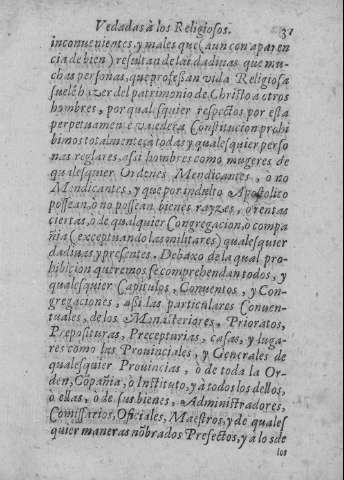 Vedadas à los Religiosos. 31
inconuenientes, y males que (aun con aparen
cia de bien) resultan de las dadiuas que mu-
chas personas, que professan vida Religiosa
suelē hazer del patrimonio de Christo a otros
hombres, por qualesquier respectos, por esta
perpetuamente valedera Constitucion prohi
bimos totalmente, à todas y qualesquier perso
nas reglares, assi hombres como mugeres de
qualesquier Ordenes Mendicantes, o no
Mendicantes, y que por indulto Apostolico
possean, ò no possean bienes rayzes, ò rentas
ciertas, ò de qualquier Congregacion, ò compa
ñia (exceptuando las militares) qualesquier
dadiuas y presentes. Debaxo de la qual pro-
hibicion queremos se comprehendan todos, y
qualesquier Capitulos, Conuentos, y Con-
gregaciones, assi las particulares Conuen-
tuales, de los Monasterios, Prioratos,
Preposituras, Precepturias, casas, y luga-
res como las Prouinciales, y Generales de
qualesquier Prouincias, ò de toda la Or-
den, Cōpañia, ò Instituto, y à todos los dellos,
ò ellas, ò de sus bienes, Administradores,
Comissarios, Oficiales, Maestros, y de quales
quier maneras nōbrados Prefectos, y à los de
los